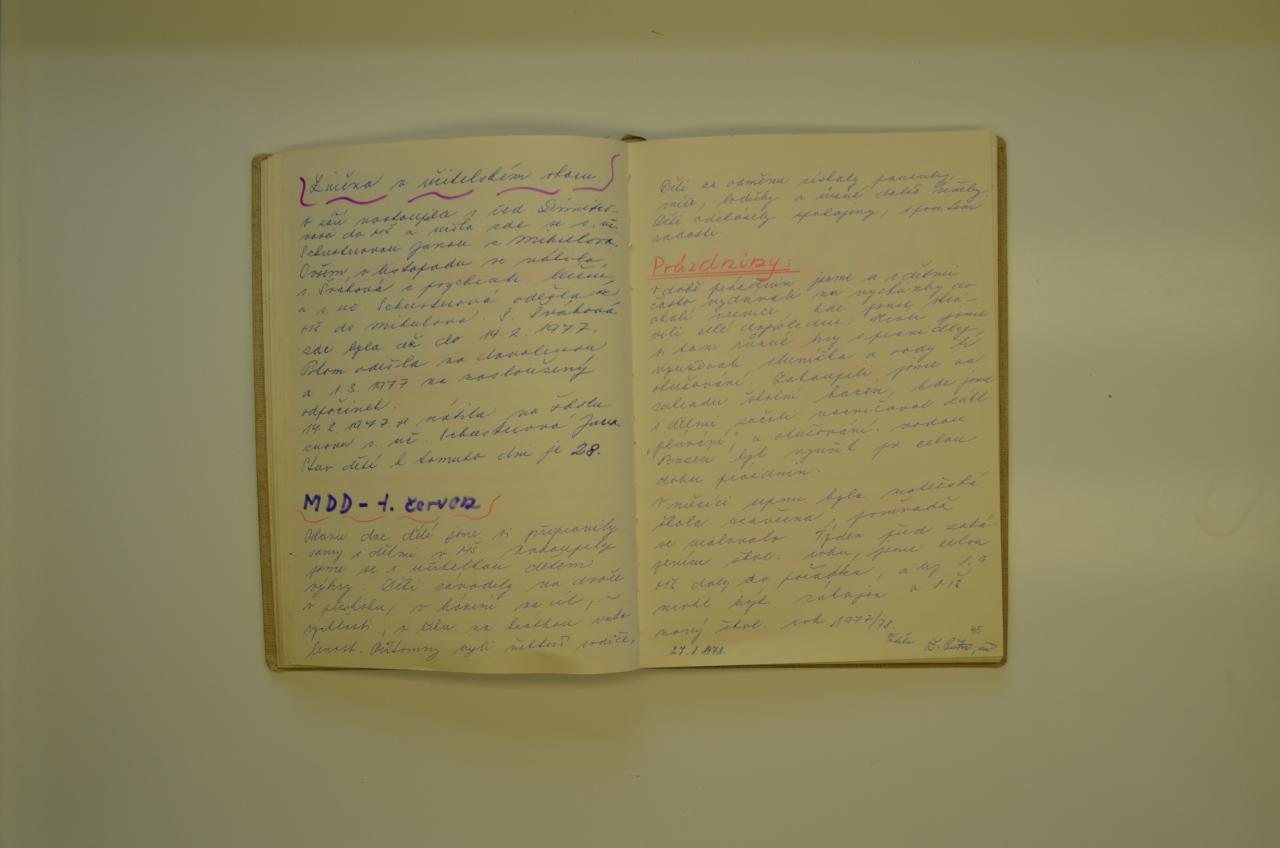 Změna v učitelském sboru
V září nastoupila s. řed.
nová do MŠ a měla zde se s. uč.
Schusterovou Janou z Mikulova.
Ovšem, v listopadu se vrátila
s. Svábová z psychiatr. léčení
a s. uč. Schusterová odešla z
MŠ do Mikulova. S. Svábová
zde byla až do 14.2.1977.
Potom odešla na dovolenou
a 1.3.1977 na zasloužený
odpočinek.
14.2.1977 se vrátila na školu
znovu s. uč. Schusterová Jana
Stav dětí k tomuto dni je 28.
MDD - 1. červen
Oslavu dne dětí jsme si připravily
samy s dětmi v MŠ. Nakoupily
jsme se s. učitelkou dětem
výhry. Děti závodily na dvoře
v poskoku, v házení na cíl, v
rychlosti, v
Přítomny byli někteří rodiče.
Děti za odměnu získaly panenky,
míče, lodičky a různé další hračky.
Děti odcházely spokojeny, s pocitem
radosti.
Prázdniny:
V době prázdnin jsme se s dětmi
často vydávali na vycházky do
okolí vesnice kde jsme strá-
vili celé dopoledne. Hráli jsme
si tam různé hry s pravidly,
využívali sluníčka a vody k
otužování. Zakoupili jsme na
zahradu školní bazén, kde jsme
s dětmi začali nacvičovat základ
plavání a otužování vodou.
Bazén byl využit po celou
dobu prázdnin.
V měsíci srpnu byla mateřská
škola uzavřena, poněvadž
se malovalo. Týden před zahá-
jením škol. roku, jsme celou
MŠ daly do pořádku, a tak 1.9.
mohl být zahájen v MŠ
nový škol. rok 1977/78.
27.1.1978.
45